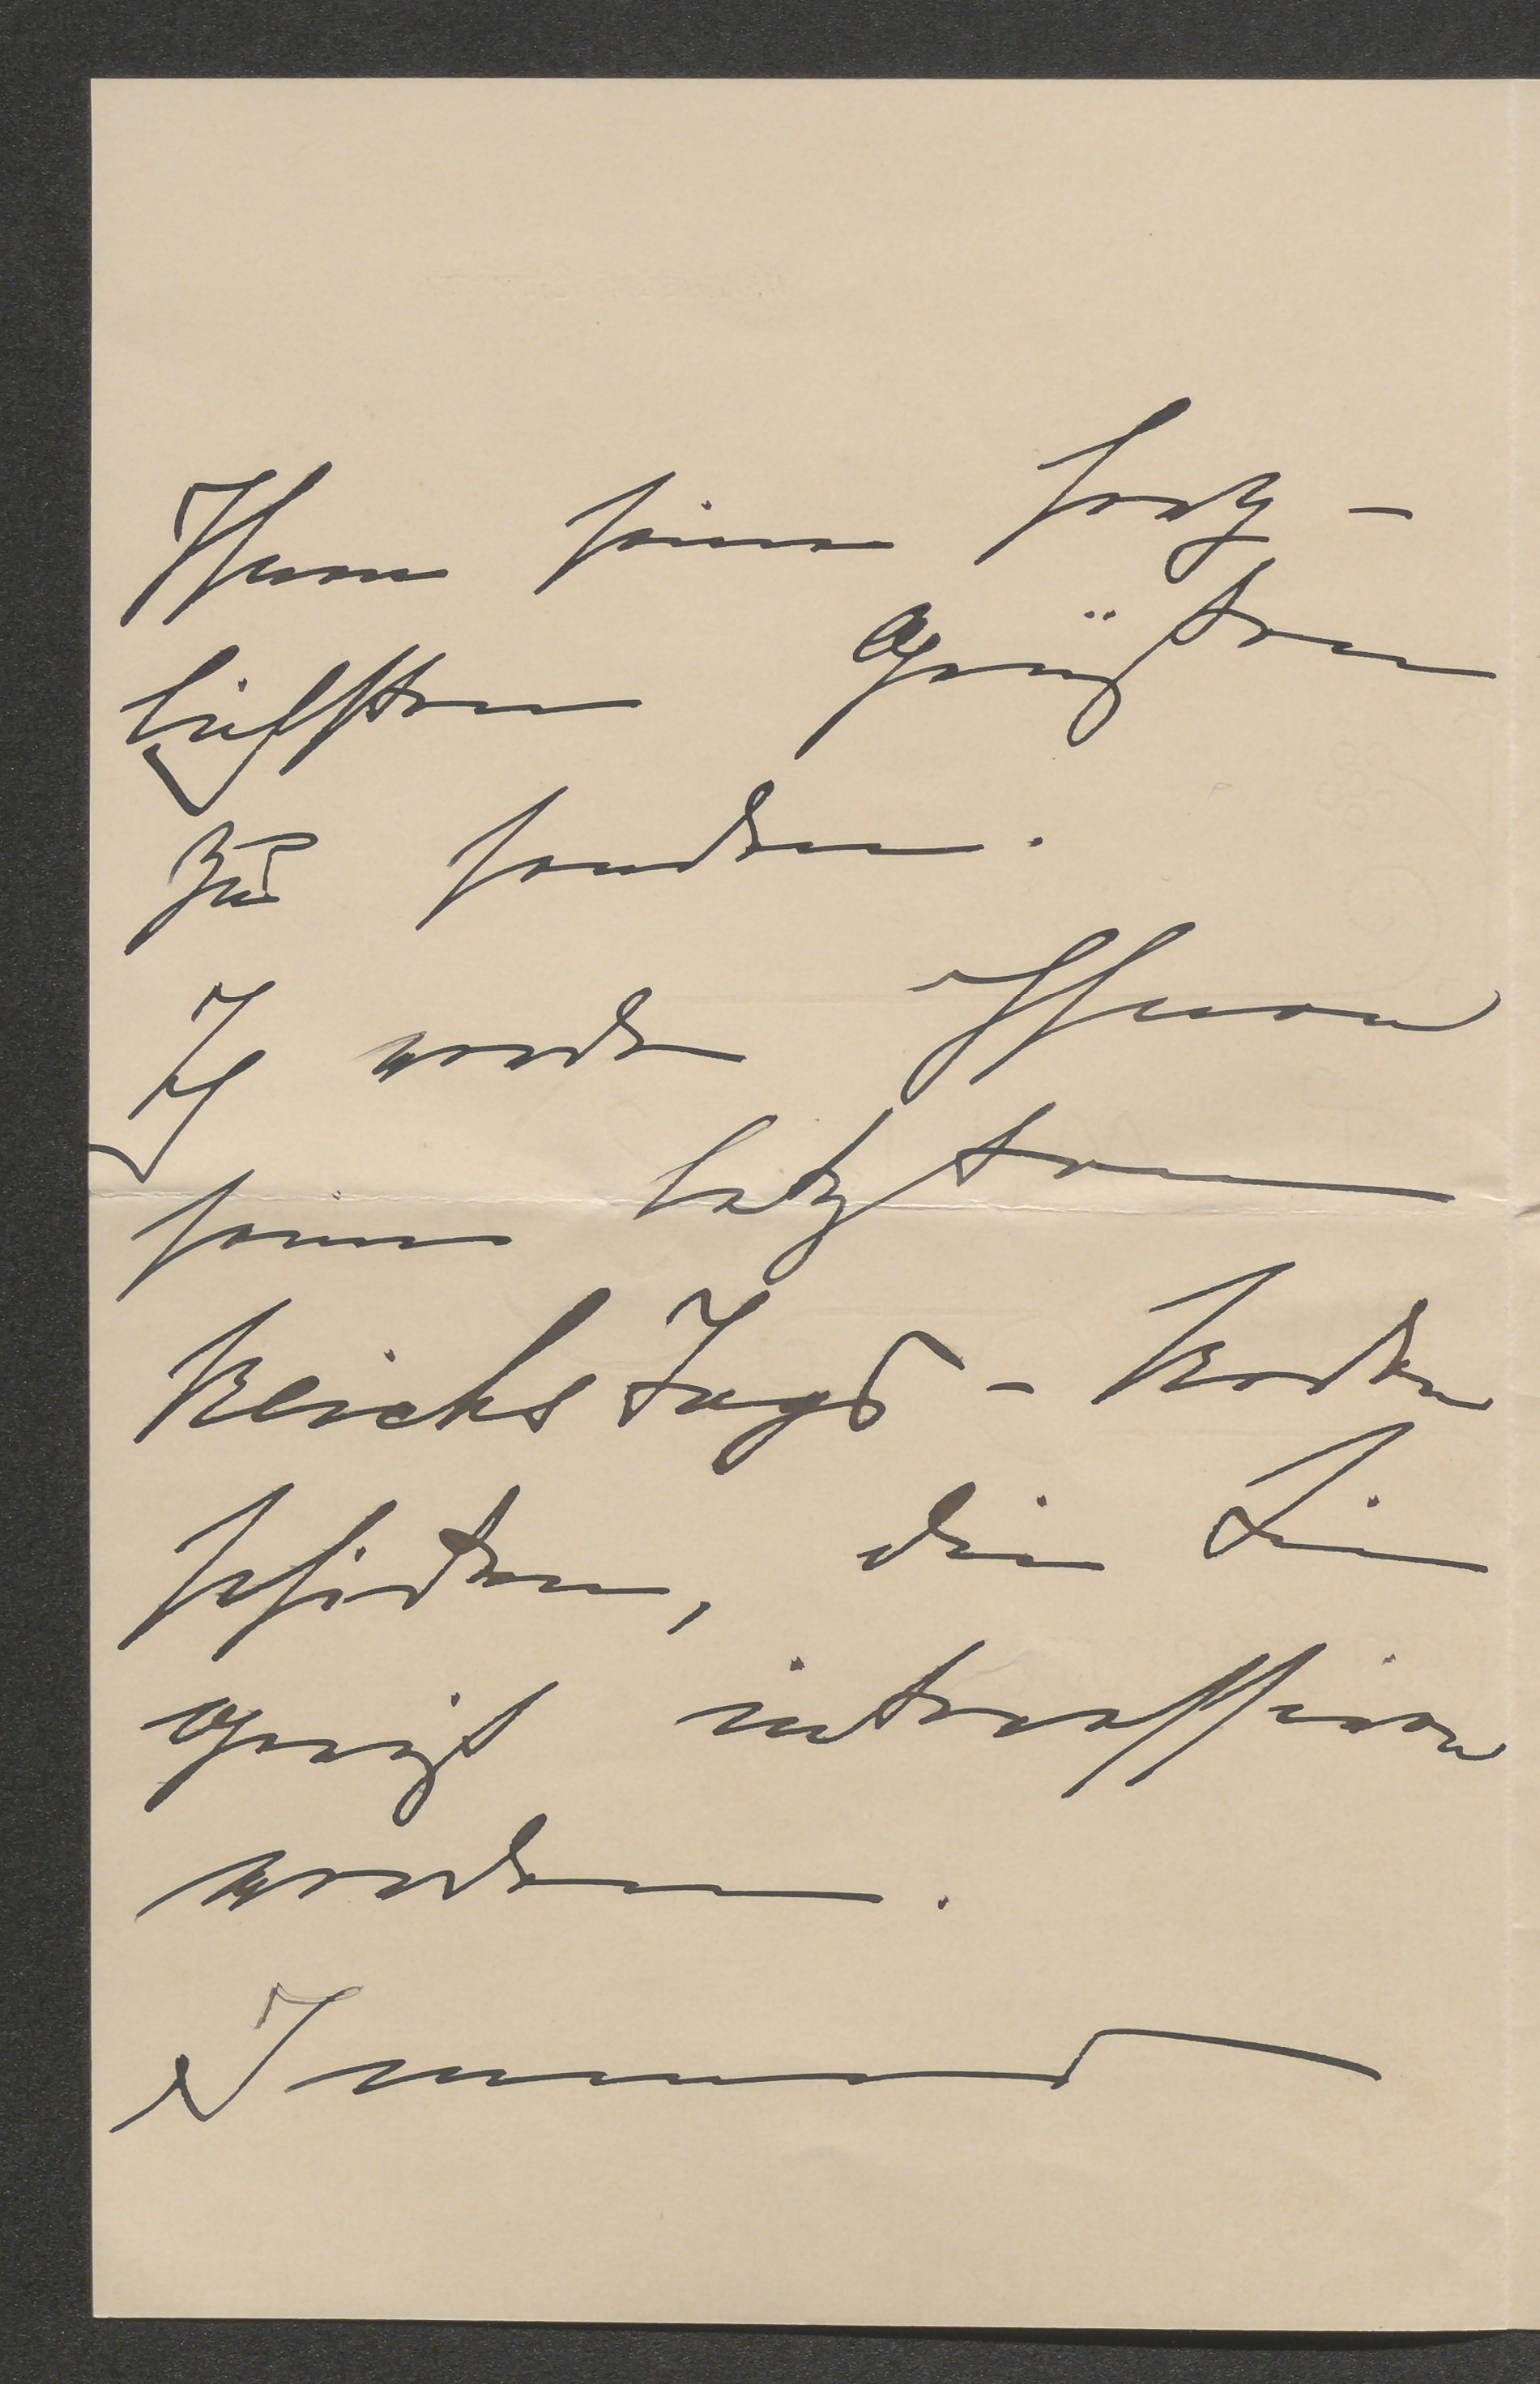 Ihnen seine herz-
lichsten Grüße
zu senden.
Ich werde Ihnen
seine letzten
Reichstags-Reden
schicken, die Sie
gewiß interessieren
werden.